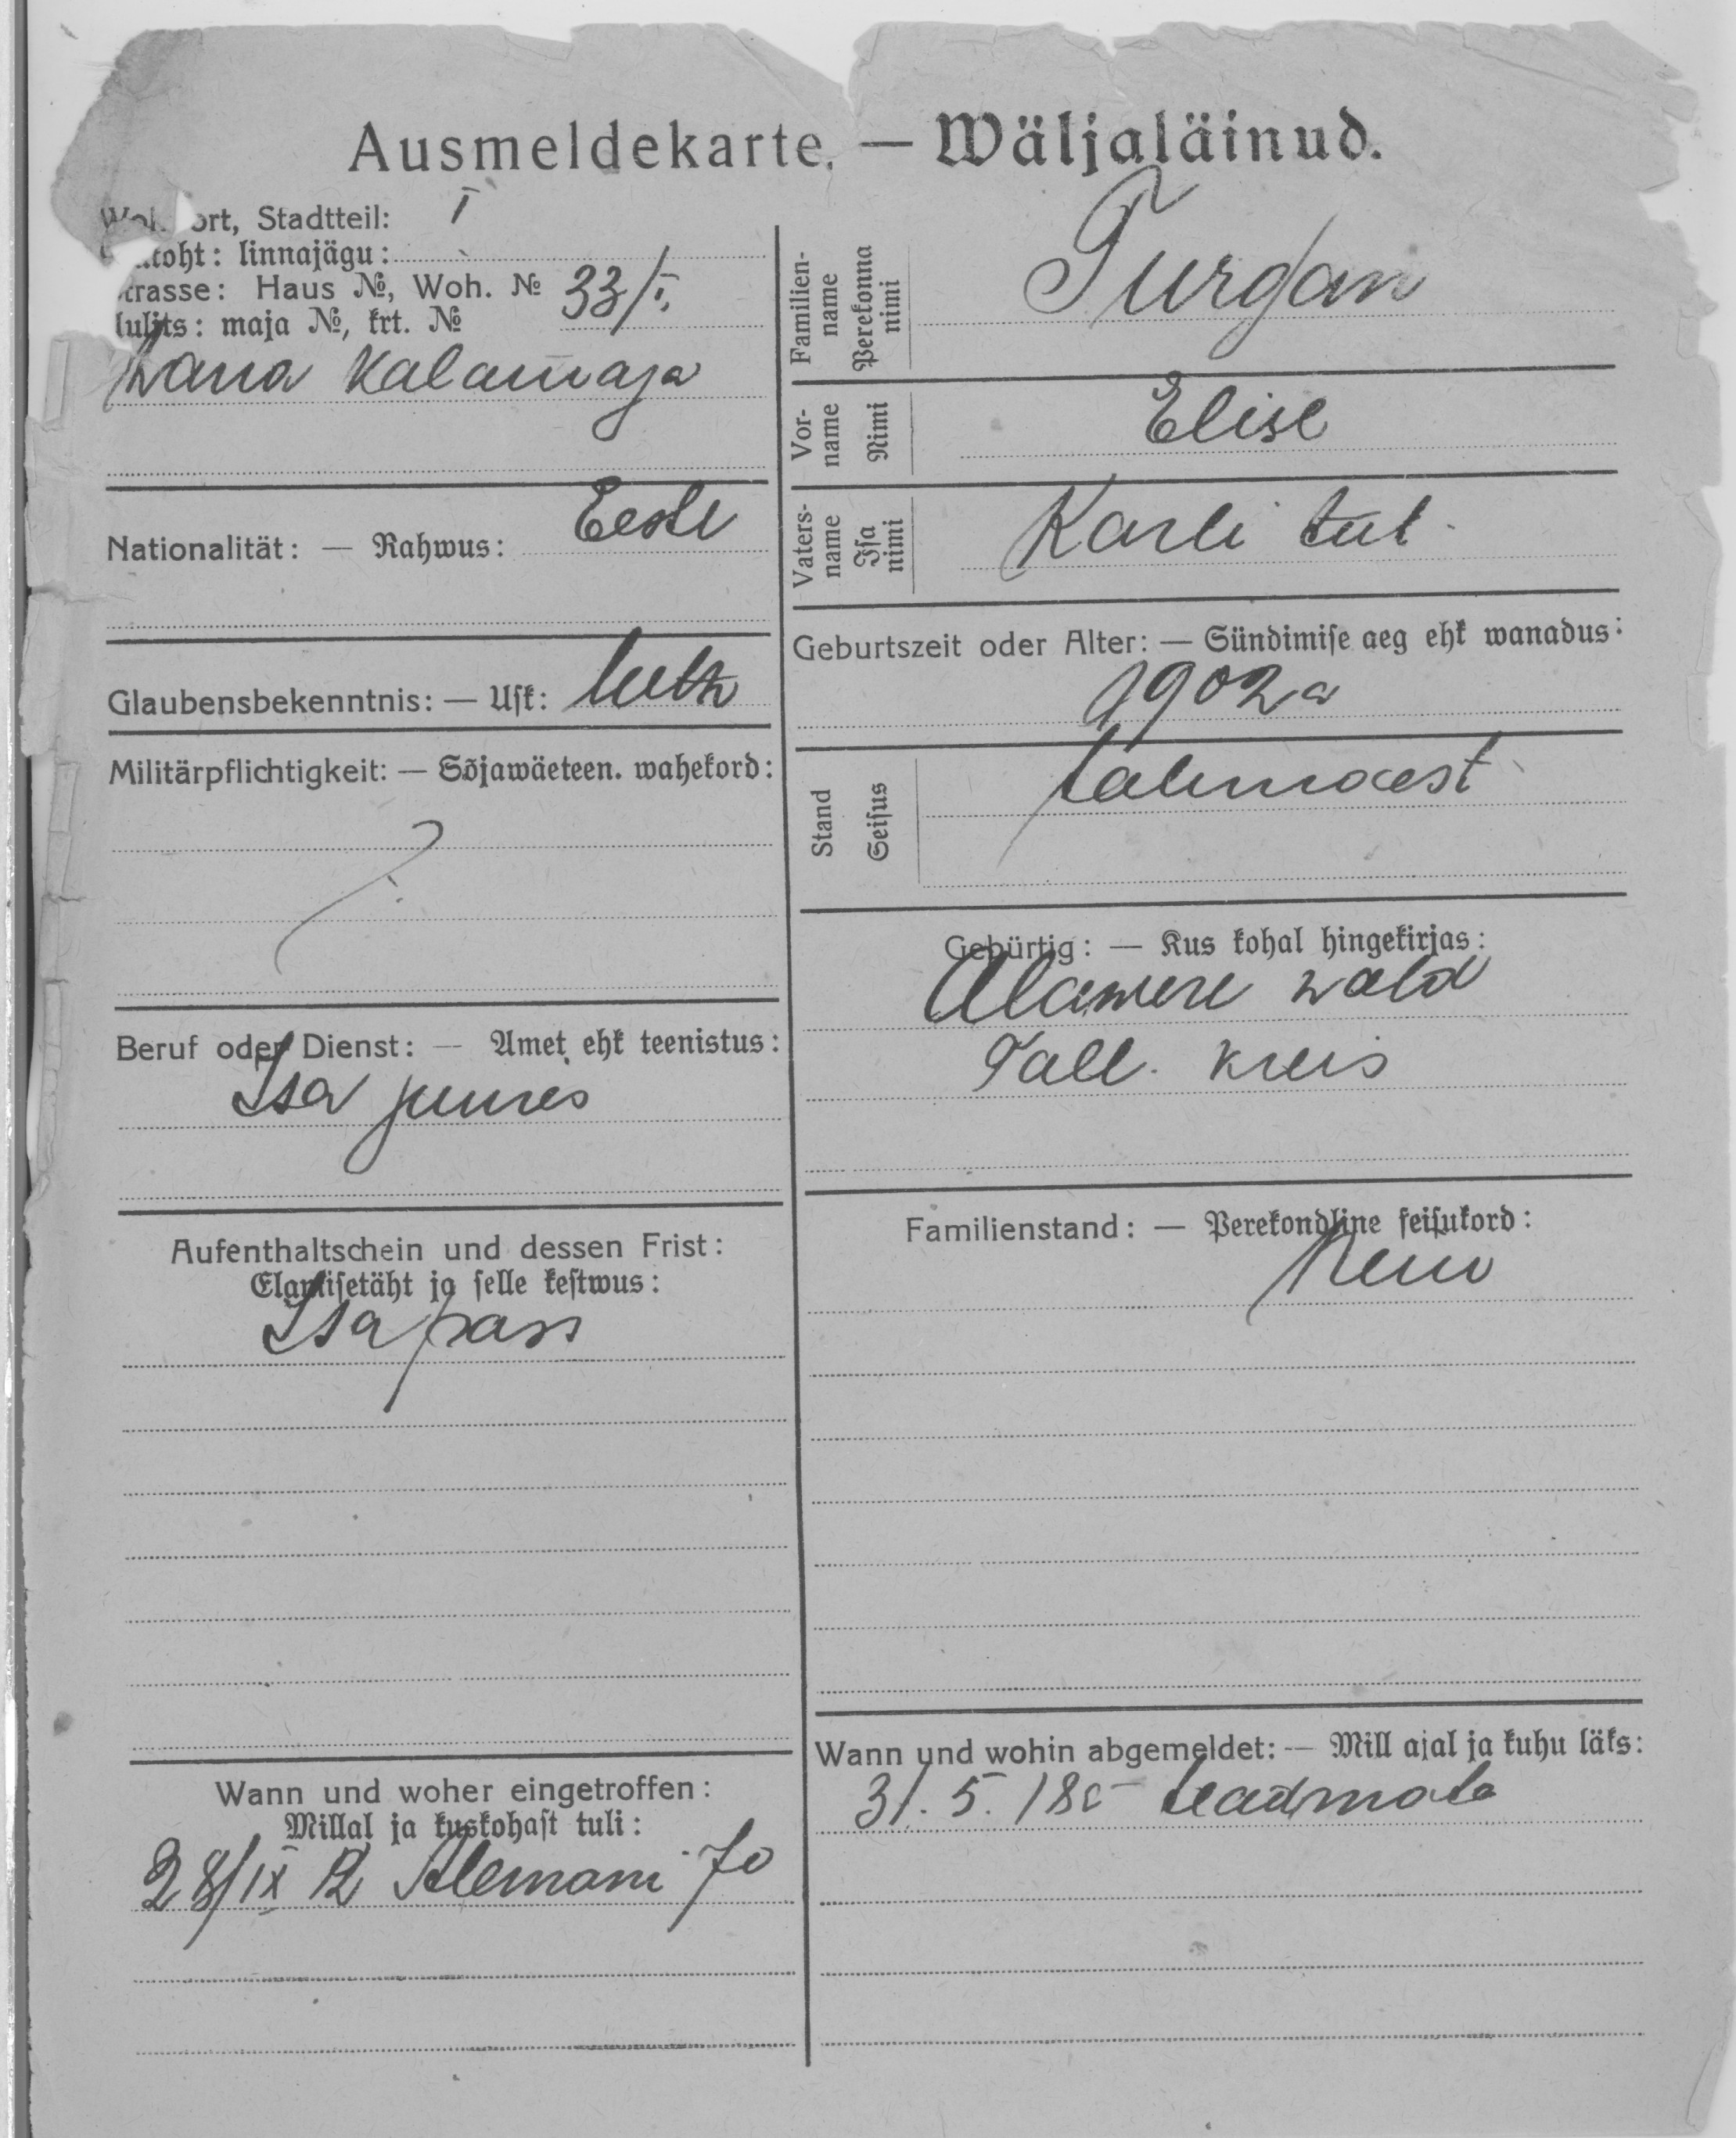 Ausmeldekarte. — Wäljaläinud.
ort, Stadtteil: I
linnajägu:
Strasse: Haus №, Woh. № 33/I.
Uulits: maja №, krt. №
Wana Kalamaja
Nationalität: — Rahwus: Eesti
Glaubensbekenntnis: — Usk: luth
Militärpflichtigkeit: — Sõjawäeteen. wahekord:
Beruf oder Dienst: — Amet ehk teenistus:
Isa juures
Aufenthaltschein und dessen Frist:
Elamisetäht ja selle kestwus:
Isa pass
Wann und woher eingetroffen:
Millal ja kuskohast tuli:
28/IX 12 Alemani 70
Familien-name Perekonna nimi Turgan
Vor-name Nimi Elise
Vaters-name Isa nimi Karli tüt.
Geburtszeit oder Alter: — Sündimise aeg ehk wanadus:
1902 a
Stand Seisus talumaest
Gebürtig: — Kus kohal hingekirjas:
Alawere wald
Tall. kreis
Familienstand: — Perekondline seisukord:
Neiu
Wann und wohin abgemeldet: — Mill ajal ja kuhu läks:
31. 5. 18 teadmata